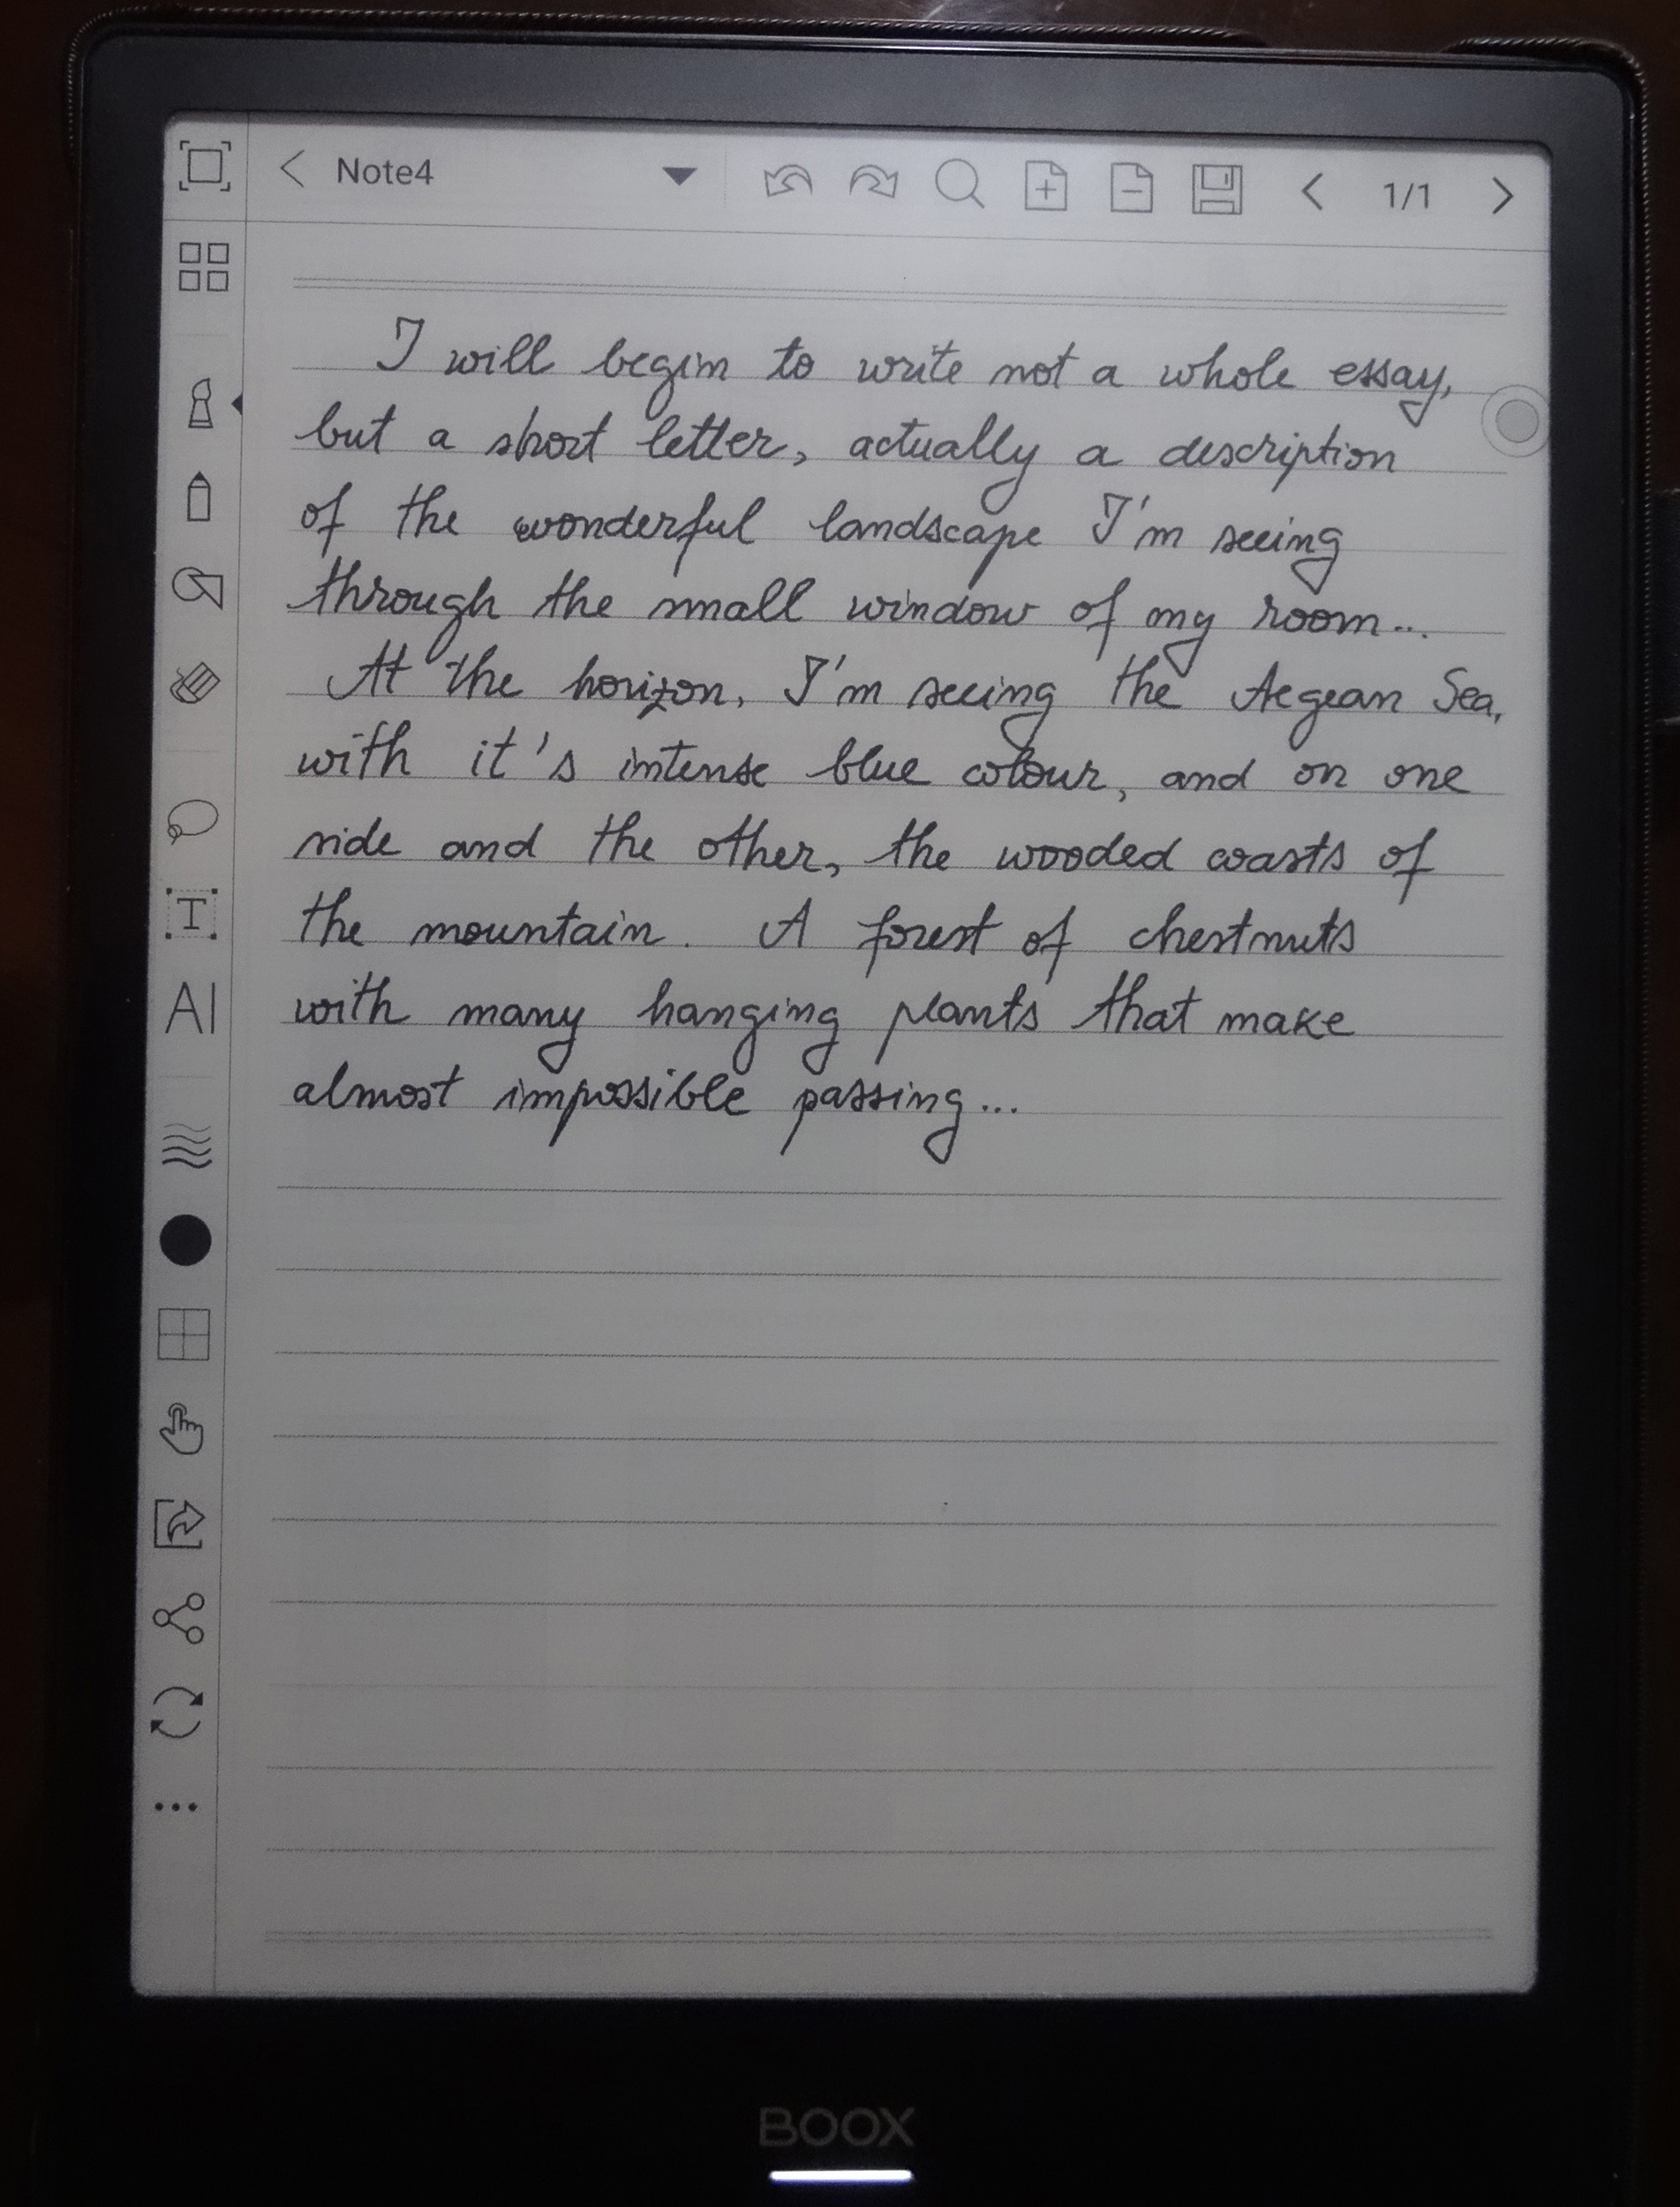 Note4 1/1
I will begin to write not a whole essay,
but a short letter, actually a description
of the wonderful landscape I'm seeing
through the small window of my room...
At the horizon, I'm seeing the Aegean Sea,
with it's intense blue colour, and on one
side and the other, the wooded coasts of
the mountain. A forest of chestnuts
with many hanging plants that make
almost impossible passing...
T
AI
BOOX